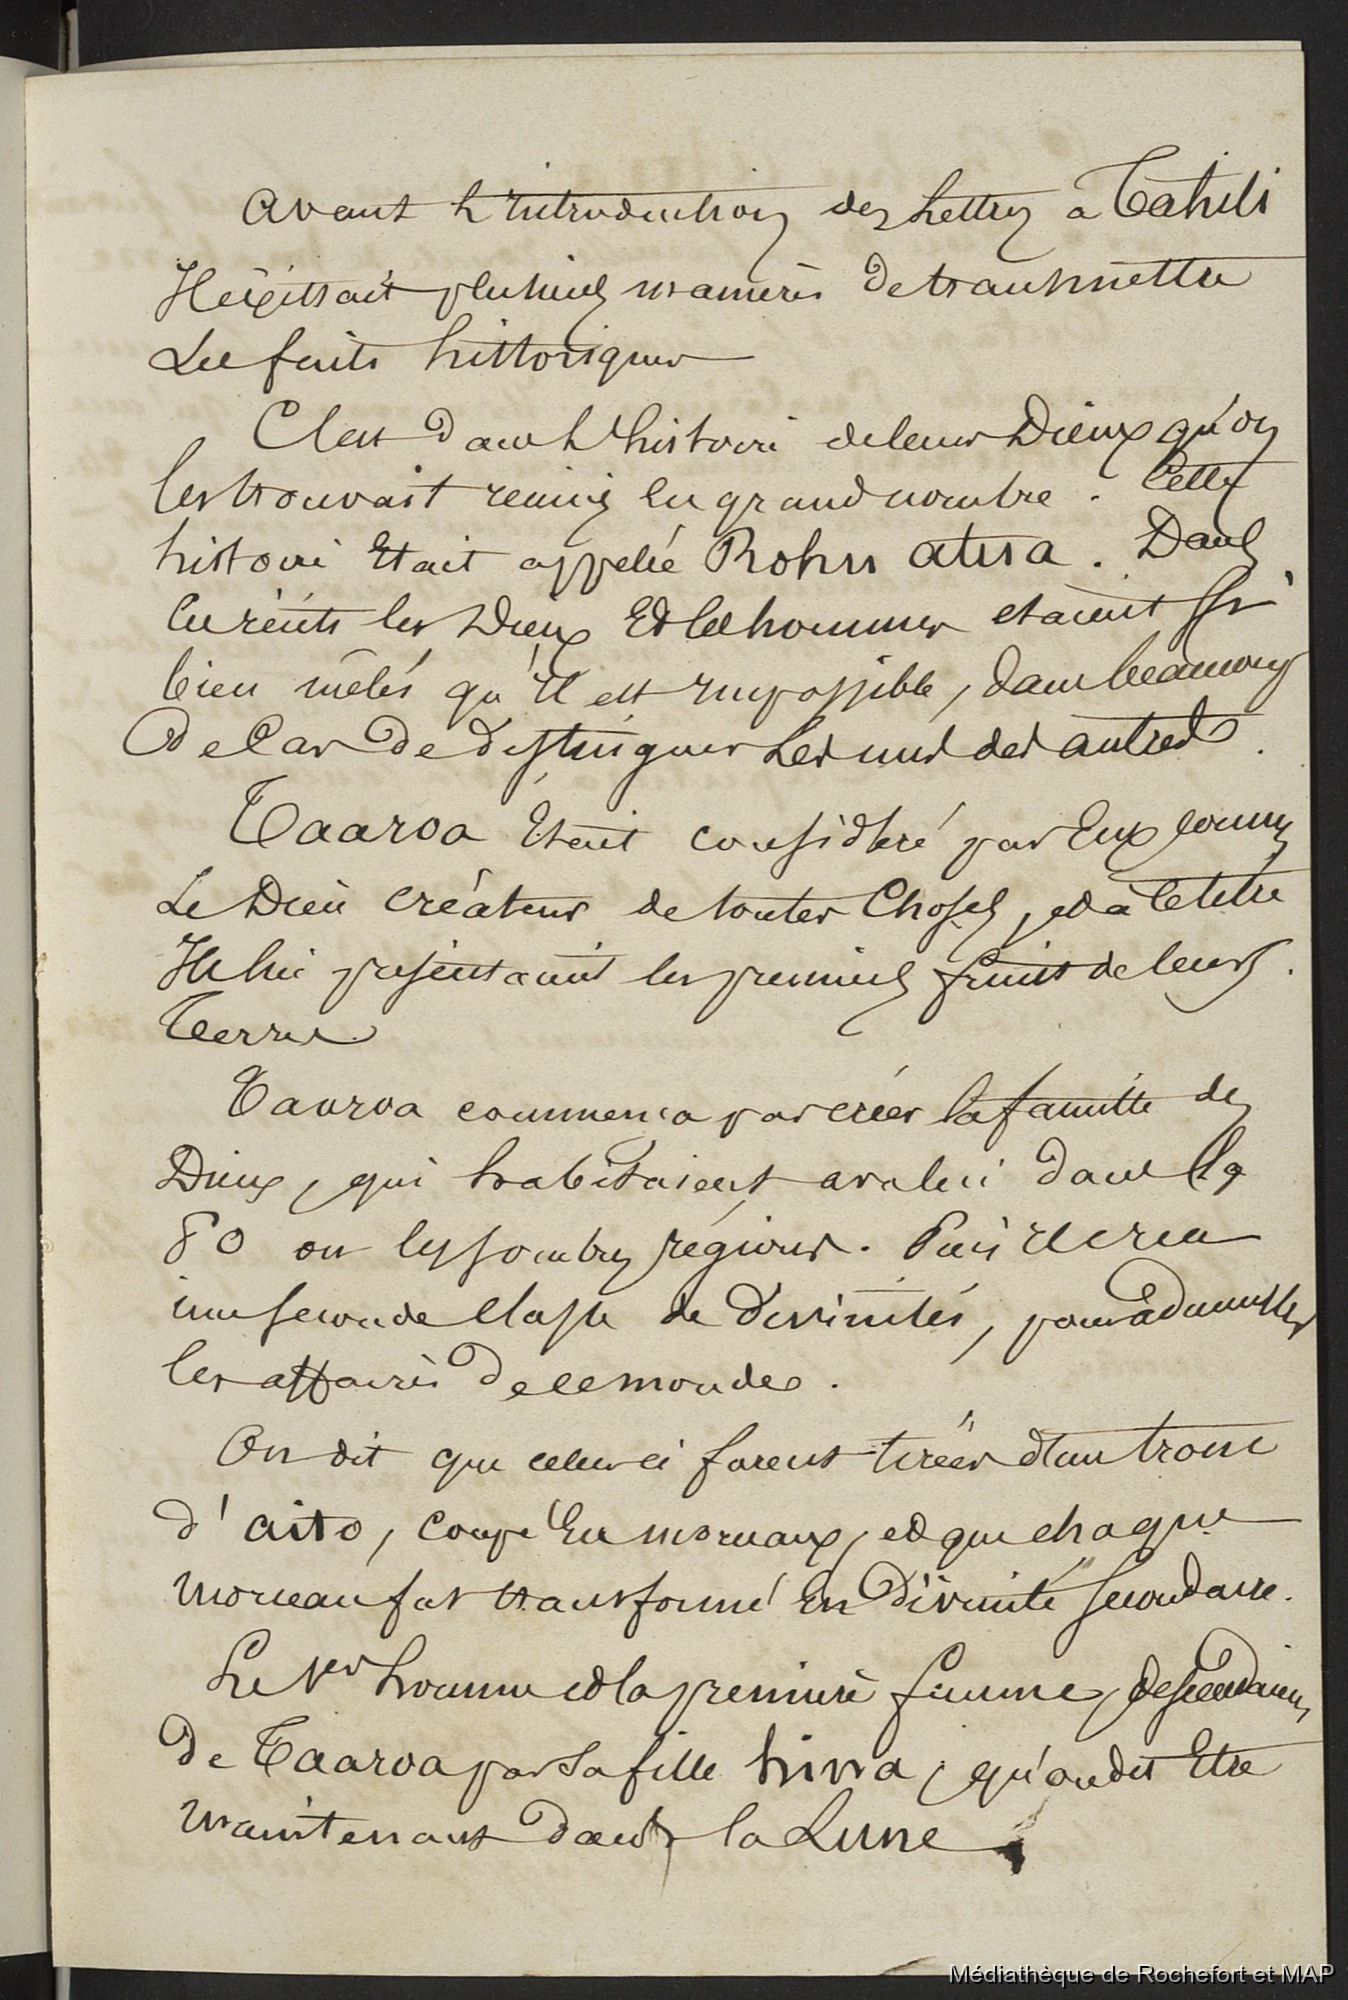 Avant l'introduction des lettres à Tahiti
Il éxistait plusieurs manières de transmettre
Les faits historiques
C'est dans l'histoire de leurs Dieux qu'on
les trouvait réunis en grand nombre. Cette
histoire était appelée Rohu atua. Dans
ces récits les Dieux Et les hommes étaient si
bien mêlés qu'il est impossible, dans beaucoup
de cas de distinguer Les uns des autres.
Taaroa était considéré par Eux comme
Le Dieu créateur de toutes Choses, et à ce titre
Ils lui présentaient les premiers fruits de leurs
Terres
Taaroa commença par créer la famille des
Dieux, qui habitaient avec lui dans le
Po ou les sombres régions. Puis il créa
une seconde classe de Divinités, pour administrer
les affaires de ce monde.
On dit que celles ci furent tirées d'un tronc
d'aito, coupé En morceaux, et que chaque
morceau fut transformé En Divinité secondaire.
Le 1er homme et la première femme, descendaient
de Taaroa par sa fille hina, qu'on dit Etre
maintenant dans la Lune.
Médiathèque de Rochefort et MAP